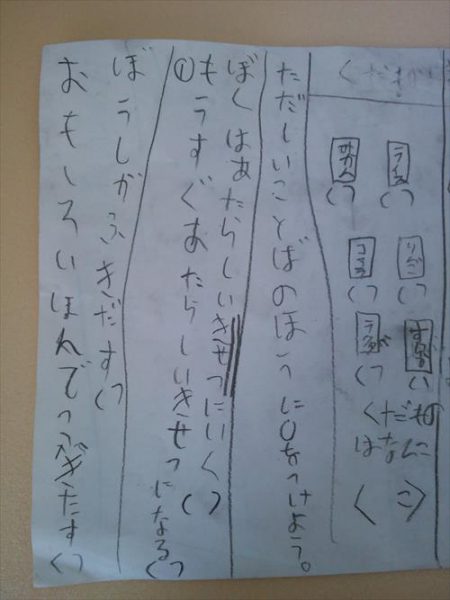 りんご
( )
みかん
( )
くだもの
はなんこ
( こ)
ただしいことばのほうに○をつけよう。
ぼくはあたらしいきせつにいく( )
①もうすぐあたらしいきせつになる( )
ぼうしがふきだす( )
おもしろいほんで